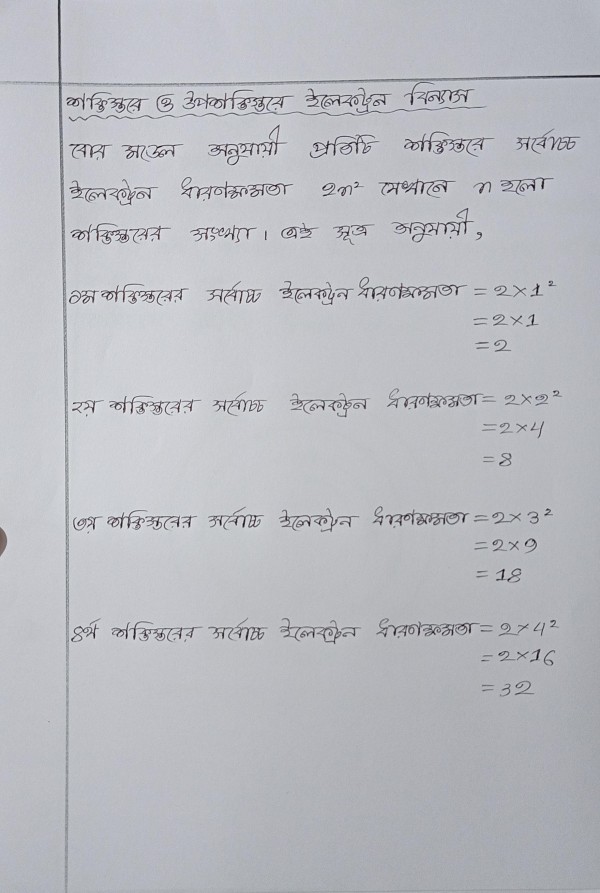 শক্তিস্তরে ও উপশক্তিস্তরে ইলেকট্রন বিন্যাস
বোর মডেল অনুযায়ী প্রতিটি শক্তিস্তরে সর্বোচ্চ
ইলেকট্রন ধারণক্ষমতা 2n² যেখানে n হলো
শক্তিস্তরের সংখ্যা। এই সূত্র অনুযায়ী,
১ম শক্তিস্তরের সর্বোচ্চ ইলেকট্রন ধারণক্ষমতা = 2×1²
= 2×1
= 2
২য় শক্তিস্তরের সর্বোচ্চ ইলেকট্রন ধারণক্ষমতা = 2×2²
= 2×4
= 8
৩য় শক্তিস্তরের সর্বোচ্চ ইলেকট্রন ধারণক্ষমতা = 2×3²
= 2×9
= 18
৪র্থ শক্তিস্তরের সর্বোচ্চ ইলেকট্রন ধারণক্ষমতা = 2×4²
= 2×16
= 32